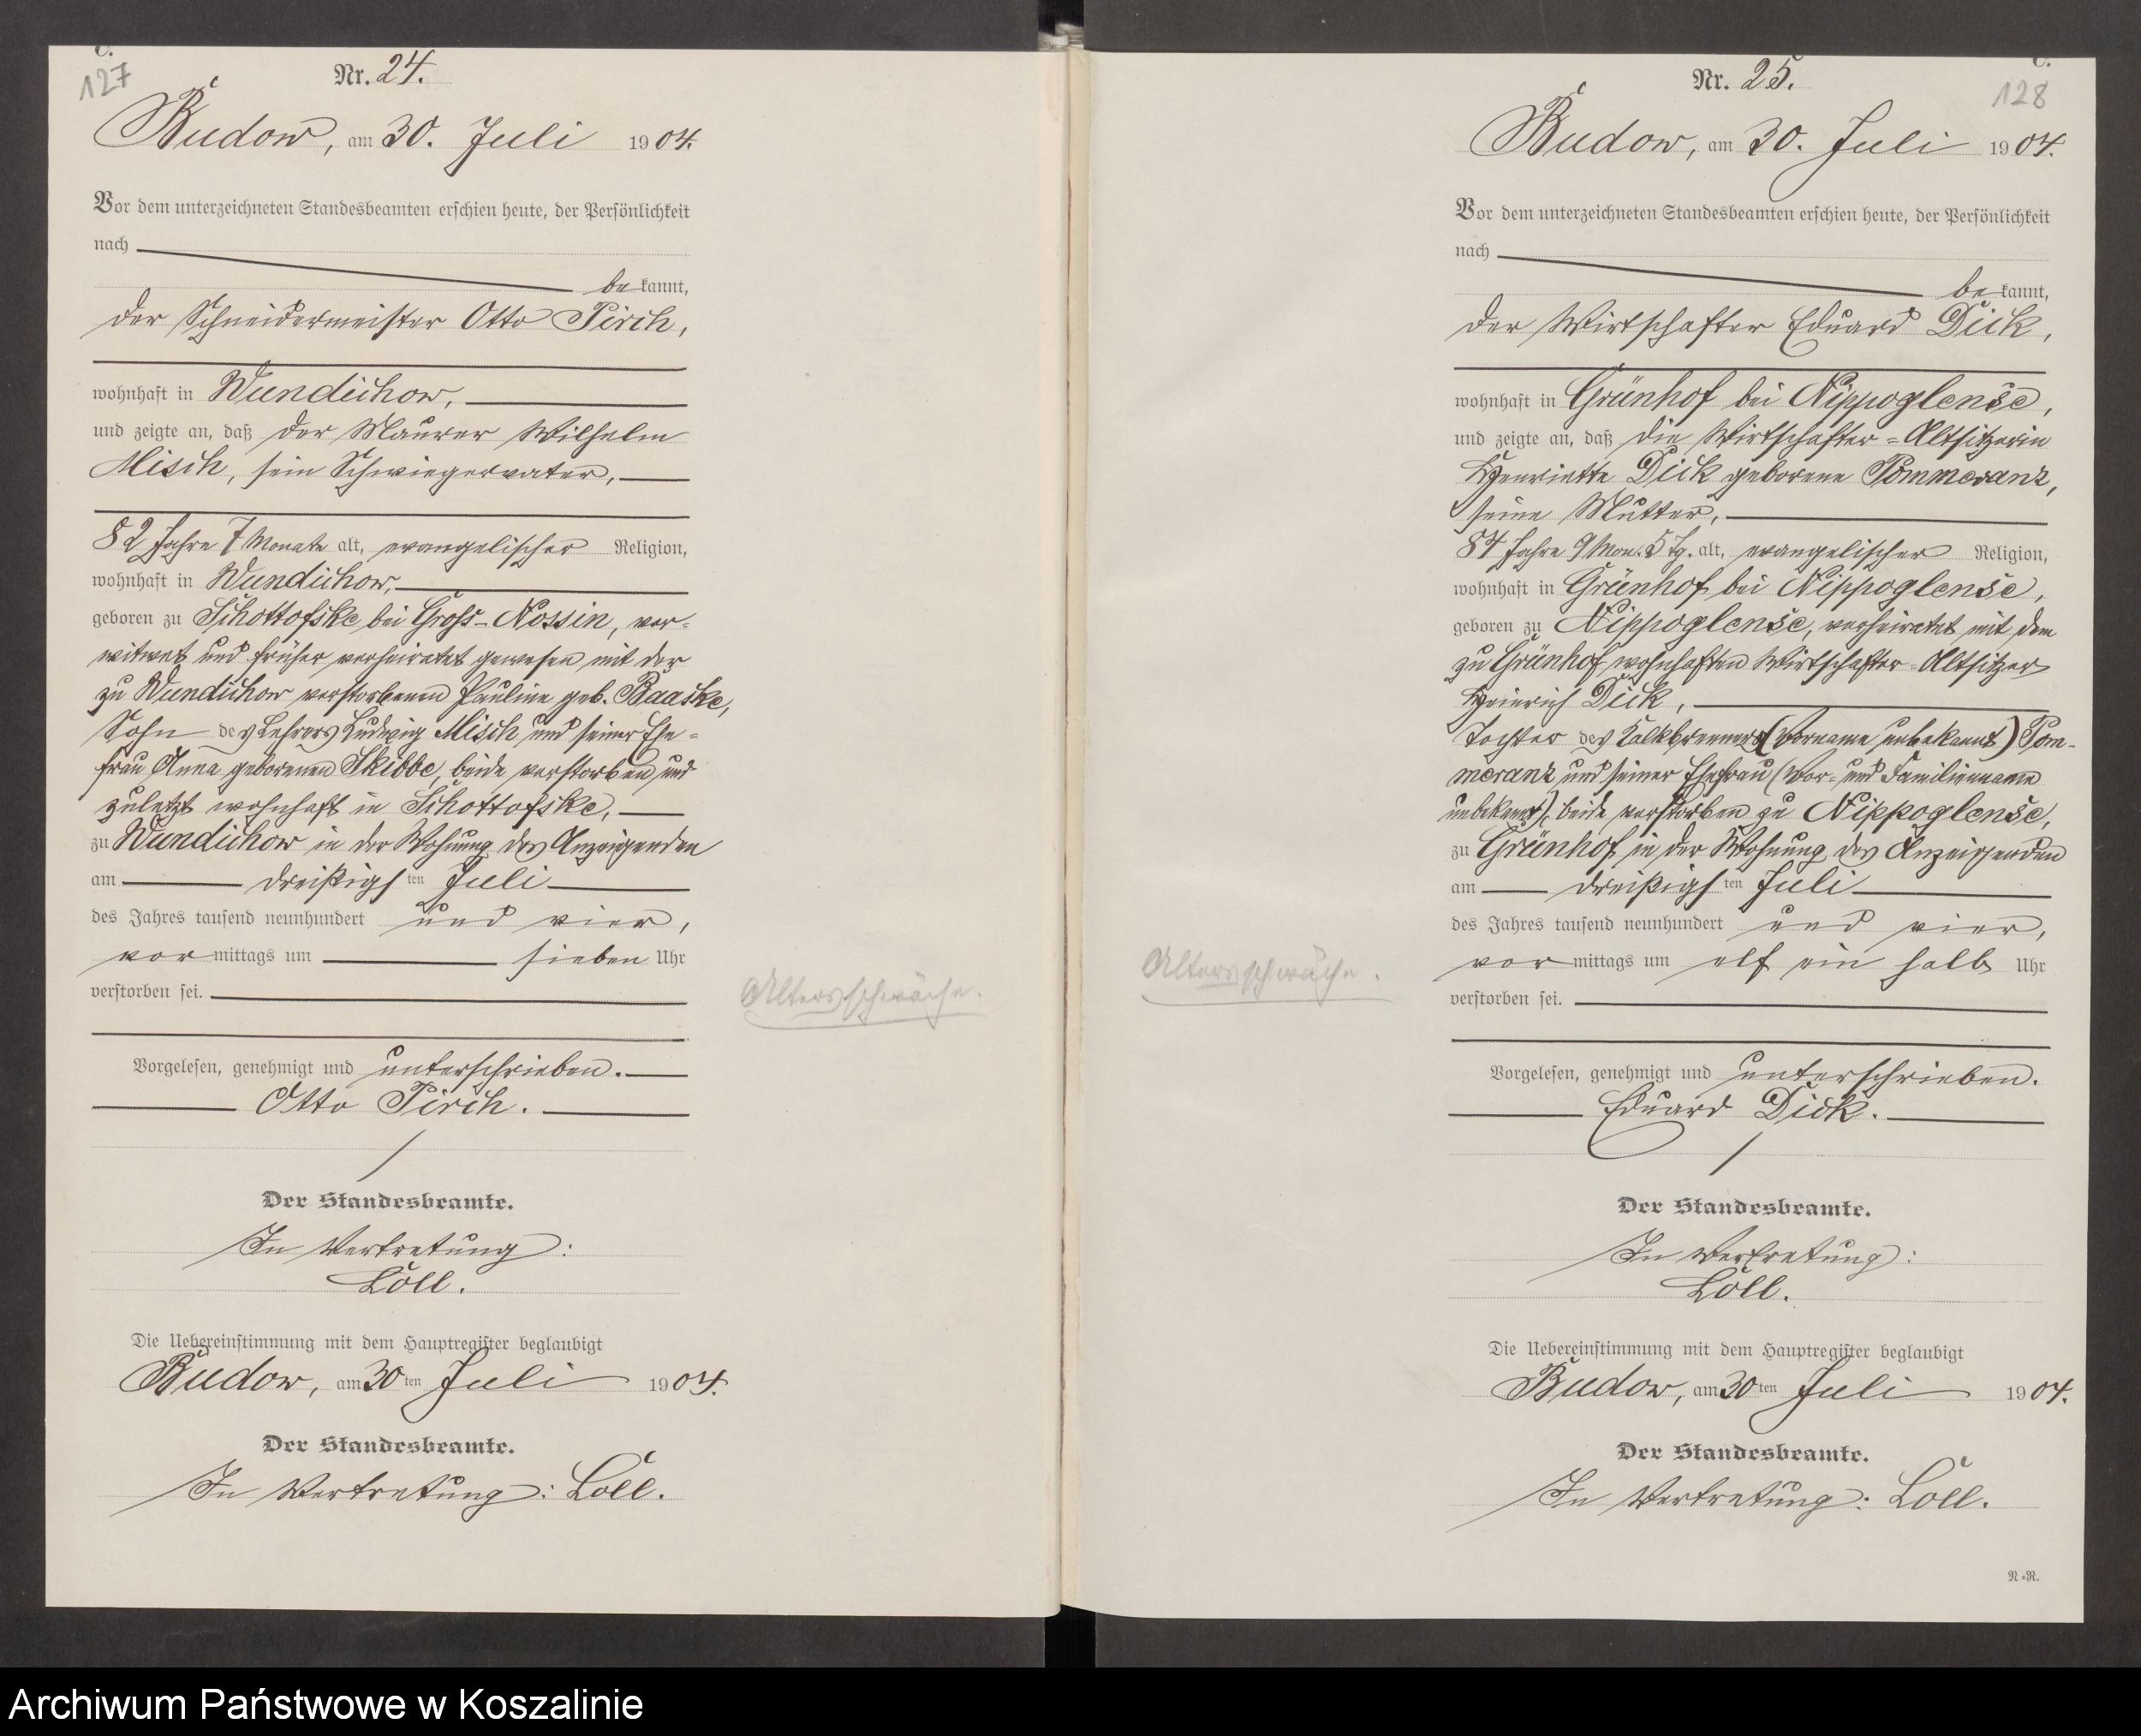 C.
127
Nr. 24.
Budow, am 30. Juli 1904.
Vor dem unterzeichneten Standesbeamten erschien heute, der Persönlichkeit
nach
be kannt,
der Schneidermeister Otto Pirch,
wohnhaft in Wundichow,
und zeigte an, daß der Maurer Wilhelm
Misch, sein Schwiegervater,
82 Jahre 7 Monate alt, evangelischer Religion,
wohnhaft in Wundichow,
geboren zu Schottofske bei Gross-Nossin, ver-
witwet und früher verheiratet gewesen mit der
zu Wundichow verstorbenen Pauline geb. Baaske,
Sohn des Lehrers Ludwig Misch und seiner Ehe-
frau Anna geborenen Skibbe, beide verstorben und
zuletzt wohnhaft in Schottofske,
zu Wundichow in der Wohnung des Anzeigenden
am dreißigsten Juli
des Jahres tausend neunhundert und vier,
vormittags um sieben Uhr
verstorben sei.
Altersschwäche.
Vorgelesen, genehmigt und unterschrieben.
Otto Pirch.
Der Standesbeamte.
In Vertretung:
Löll.
Die Uebereinstimmung mit dem Hauptregister beglaubigt
Budow, am 30ten Juli 1904.
Der Standesbeamte.
In Vertretung: Löll.
C.
128
Nr. 25.
Budow, am 30. Juli 1904.
Vor dem unterzeichneten Standesbeamten erschien heute, der Persönlichkeit
nach
be kannt,
der Wirtschafter Eduard Dick,
wohnhaft in Grünhof bei Nippoglense,
und zeigte an, daß die Wirtschafter=Altsitzerin
Henriette Dick geborene Pommeranz,
seine Mutter,
84 Jahre 9 Mon. 5 Tg. alt, evangelischer Religion,
wohnhaft in Grünhof bei Nippoglense,
geboren zu Nippoglense, verheiratet mit dem
zu Grünhof wohnhaften Wirtschafter=Altsitzer
Heinrich Dick,
Tochter des Kalkbrenners (Vorname unbekannt) Pom-
meranz und seiner Ehefrau (Vor- und Familienname
unbekannt), beide verstorben zu Nippoglense,
zu Grünhof in der Wohnung des Anzeigenden
am dreißigsten Juli
des Jahres tausend neunhundert und vier,
vormittags um elf ein halb Uhr
verstorben sei.
Altersschwäche.
Vorgelesen, genehmigt und unterschrieben.
Eduard Dick.
Der Standesbeamte.
In Vertretung:
Löll.
Die Uebereinstimmung mit dem Hauptregister beglaubigt
Budow, am 30ten Juli 1904.
Der Standesbeamte.
In Vertretung: Löll.
N=N.
Archiwum Państwowe w Koszalinie